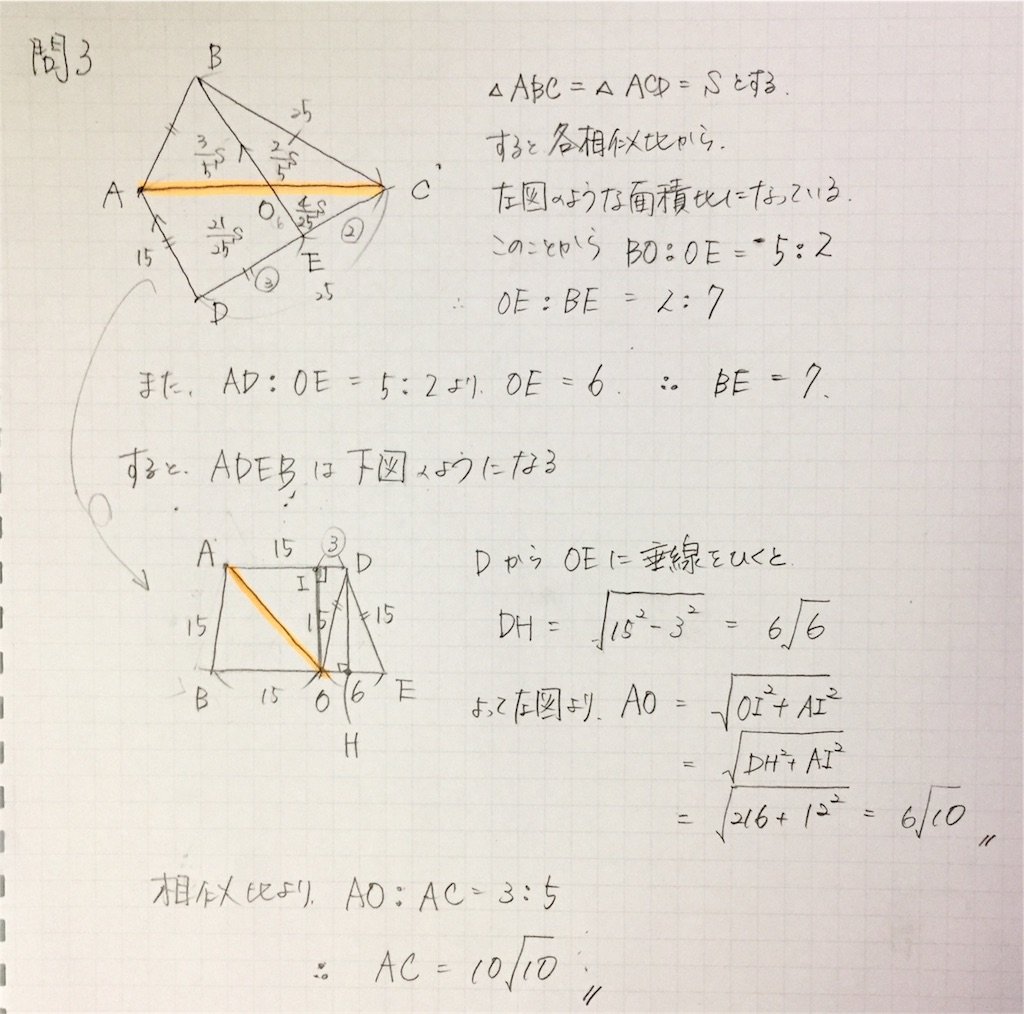 問3
B
25
3/5 S
2/5 S
A
C
O
6
4/25 S
②
21/25 S
15
E
③
25
D
△ABC = △ACD = S とする.
すると各相似比から.
左図のような面積比になっている.
このことから BO:OE = 5:2
∴ OE:BE = 2:7
また, AD:OE = 5:2より. OE = 6. ∴ BE = 7.
すると, ADEBは下図のようになる
A
15
③
D
I
15
15
15
B
15
O
6
E
H
DからOEに垂線をひくと.
DH = √15²-3² = 6√6
よって左図より. AO = √OI²+AI²
= √DH²+AI²
= √216+12² = 6√10 〃
相似比より. AO:AC = 3:5
∴ AC = 10√10 〃